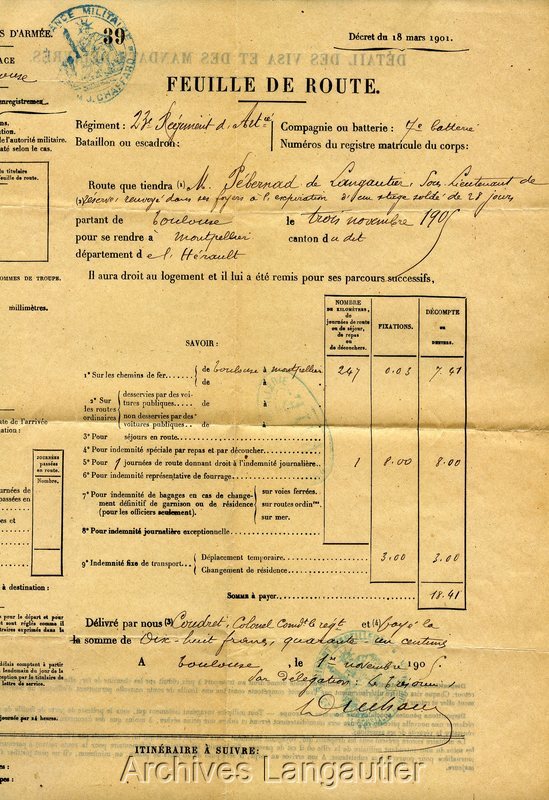 S D'ARMÉE.
39
Décret du 18 mars 1901.
FEUILLE DE ROUTE.
enregistrement
Régiment : 23e Régiment d'Artie
Compagnie ou batterie : 7e batterie
Bataillon ou escadron :
Numéros du registre matricule du corps :
de l'autorité militaire.
Route que tiendra (1) M. Pébernad de Langautier, Sous Lieutenant de
(2) réserve, renvoyé dans ses foyers à l'expiration d'un stage soldé de 28 jours
partant de Toulouse le trois novembre 1905
pour se rendre à Montpellier canton du dit
département de l'Hérault
Il aura droit au logement et il lui a été remis pour ses parcours successifs,
OMMES DE TROUPE.
millimètres.
SAVOIR :
NOMBRE
DE KILOMÈTRES,
de
journées de route
ou de séjour,
de repas
ou
de découchers.
FIXATIONS.
DÉCOMPTE
en
DENIERS.
1° Sur les chemins de fer de Toulouse à Montpellier 247 0.03 7.41
de à
2° Sur les routes ordinaires
desservies par des voitures publiques de à
non desservies par des voitures publiques de à
3° Pour séjours en route
4° Pour indemnité spéciale par repas et par découcher
5° Pour 1 journées de route donnant droit à l'indemnité journalière 1 8.00 8.00
6° Pour indemnité représentative de fourrage
7° Pour indemnité de bagages en cas de changement définitif de garnison ou de résidence (pour les officiers seulement).
sur voies ferrées.
sur routes ordinres
sur mer.
8° Pour indemnité journalière exceptionnelle
9° Indemnité fixe de transport
Déplacement temporaire 3.00 3.00
Changement de résidence
SOMME à payer 18.41
JOURNÉES
passées
en route.
Nombre.
Délivré par nous (3) Coudret, Colonel Comdt le régt et (4) payé la
la somme de Dix-huit francs, quarante un centimes
A Toulouse, le 1er novembre 1905
Par Délégation : Le Trésorier,
à destination :
ITINÉRAIRE À SUIVRE :
Archives Langautier